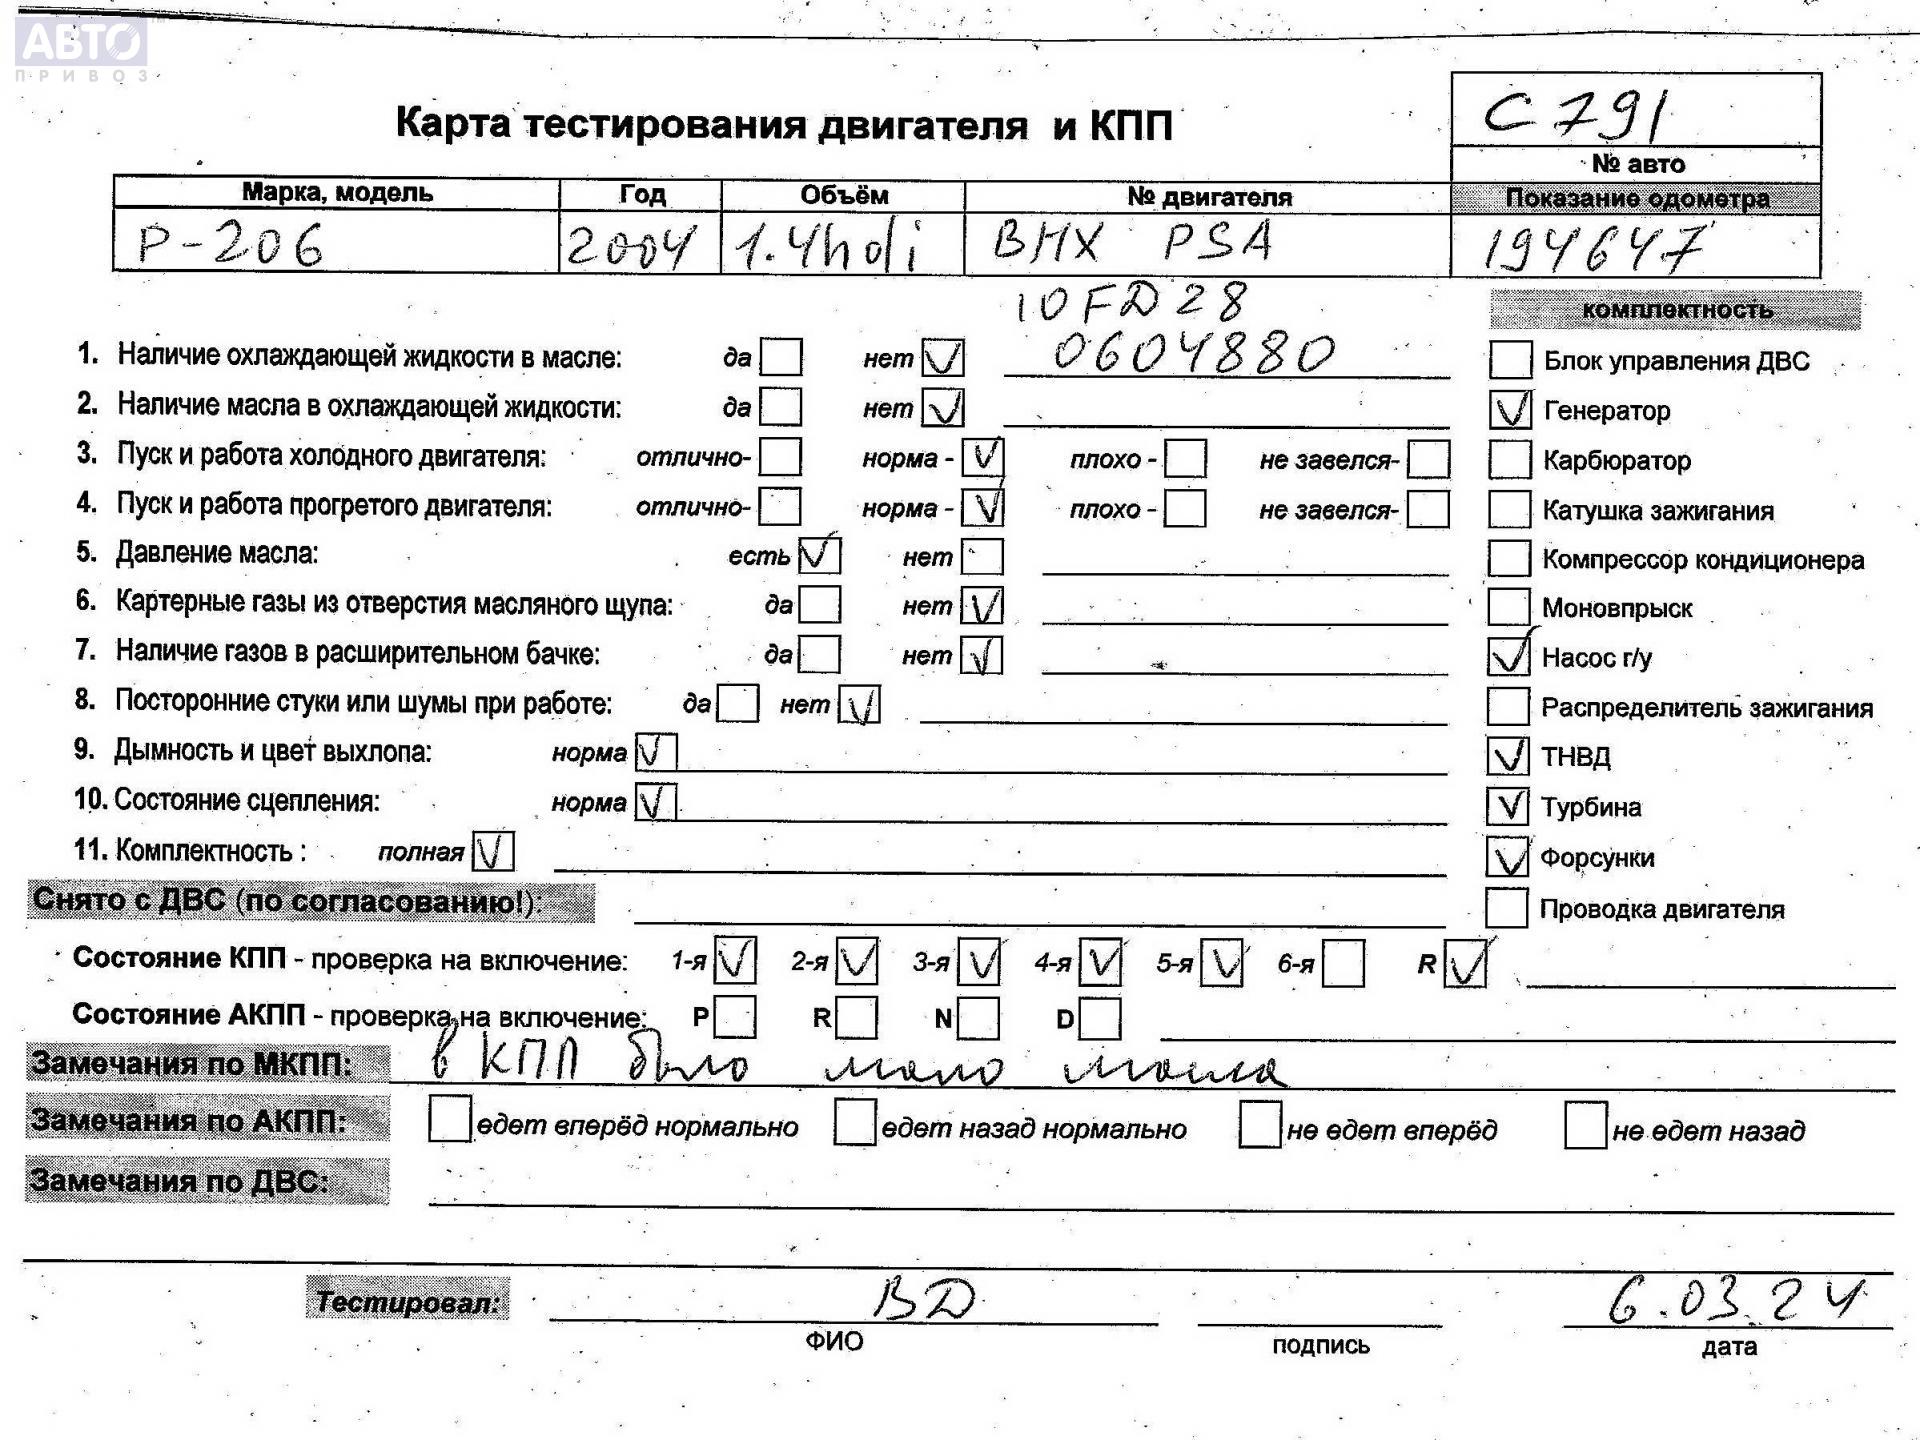 АВТО
ПРИВОЗ
Карта тестирования двигателя и КПП
С 791
№ авто
Марка, модель Год Объём № двигателя Показание одометра
P-206 2004 1.4hdi BHX PSA 194647
10FD28
комплектность
1. Наличие охлаждающей жидкости в масле: да нет 0604880 Блок управления ДВС
2. Наличие масла в охлаждающей жидкости: да нет Генератор
3. Пуск и работа холодного двигателя: отлично- норма - плохо - не завелся- Карбюратор
4. Пуск и работа прогретого двигателя: отлично- норма - плохо - не завелся- Катушка зажигания
5. Давление масла: есть нет Компрессор кондиционера
6. Картерные газы из отверстия масляного щупа: да нет Моновпрыск
7. Наличие газов в расширительном бачке: да нет Насос г/у
8. Посторонние стуки или шумы при работе: да нет Распределитель зажигания
9. Дымность и цвет выхлопа: норма ТНВД
10. Состояние сцепления: норма Турбина
11. Комплектность : полная Форсунки
Снято с ДВС (по согласованию!): Проводка двигателя
Состояние КПП - проверка на включение: 1-я 2-я 3-я 4-я 5-я 6-я R
Состояние АКПП - проверка на включение: P R N D
Замечания по МКПП: в КПП было мало масла
Замечания по АКПП: едет вперёд нормально едет назад нормально не едет вперёд не едет назад
Замечания по ДВС:
Тестировал: ВД 6.03.24
ФИО подпись дата